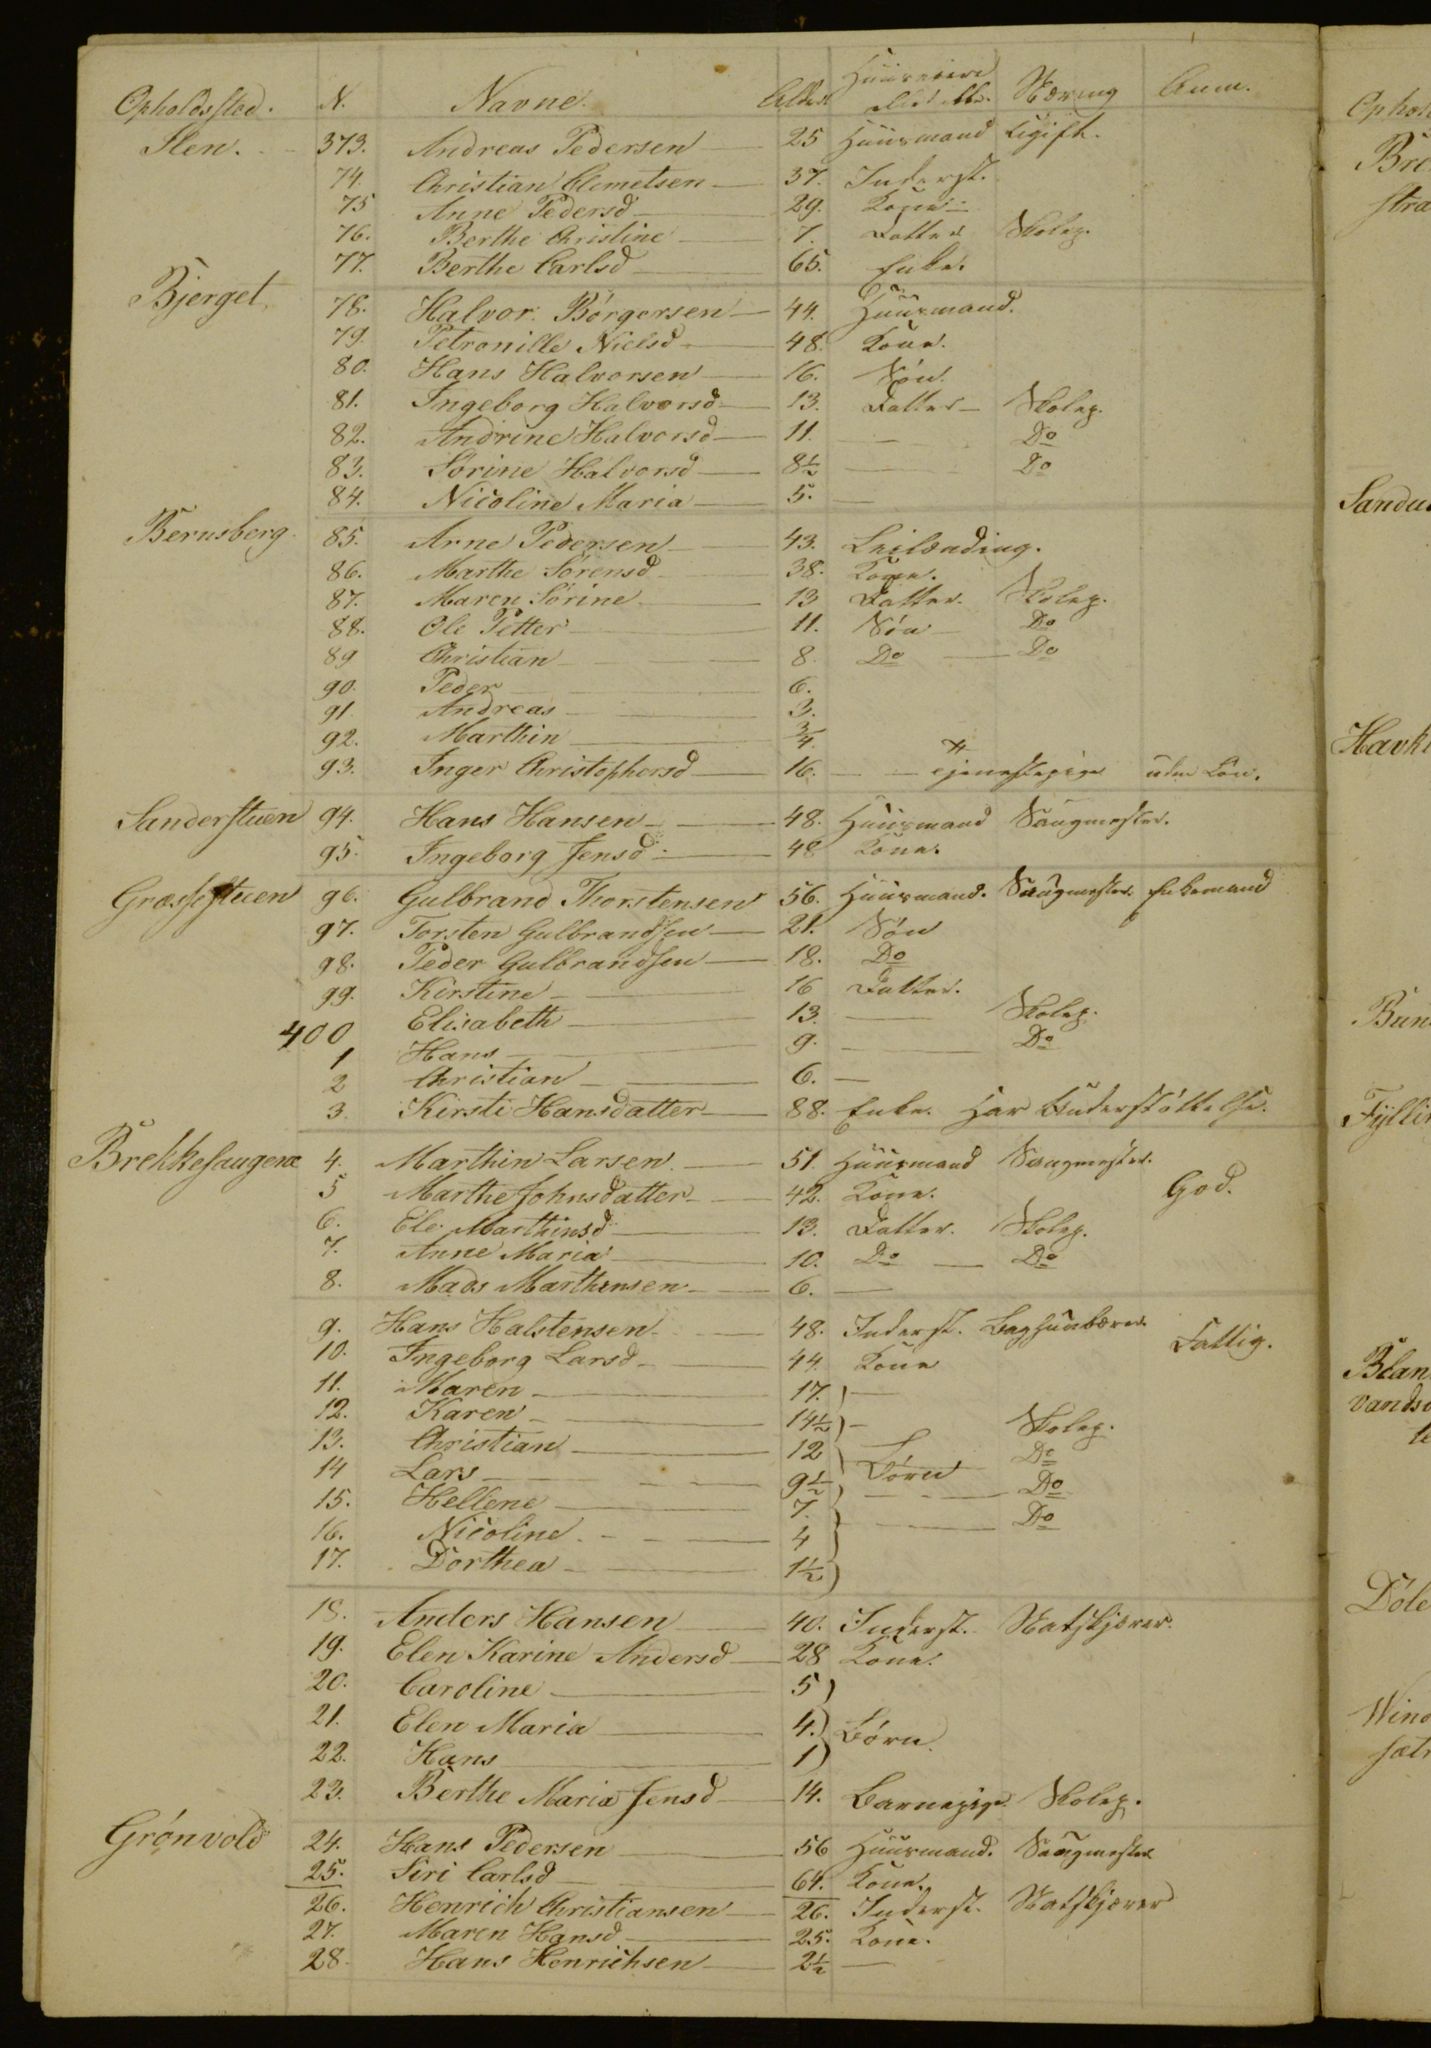 Opholdssted. N. Navne. Alder. Huusmænd eller Næring Anm.
Sten. 373. Andreas Pedersen 25 Huusmand Ugift.
74. Christian Clemetsen 37. Inderst.
75 Anne Pedersd 29. Kone
76. Berthe Christine 7. Datter Skolep.
77. Berthe Carlsd 65. Enke.
Bjerget. 78. Halvor Børgersen 44. Huusmand.
79. Petronille Nielsd 48. Kone.
80. Hans Halvorsen 16. Søn.
81. Ingeborg Halvorsd 13. Datter Skolep.
82. Andrine Halvorsd 11. — Do
83. Sørine Halvorsd 8½ — Do
84. Nicoline Maria 5. —
Bernsberg. 85. Arne Pedersen 43. Leilænding.
86. Marthe Sørensd 38. Kone.
87. Maren Sørine 13 Datter. Skolep.
88. Ole Petter 11. Søn Do
89 Christian 8. Do — Do
90. Peder 6.
91. Andreas 3.
92. Marthin ¾
93. Inger Christophersd 16. — Tjenestepige uden Løn.
Sanderstuen 94. Hans Hansen 48. Huusmand Saugmester.
95. Ingeborg Jensd 48 Kone.
Græsstuen 96. Gulbrand Thorstensen 56. Huusmand. Saugmester Enkemand
97. Torsten Gulbrandsen 21. Søn
98. Peder Gulbrandsen 18. Do
99. Kirstine 16 Datter.
400 Elisabeth 13. — Skolep.
1 Hans 9. — Do
2 Christian 6. —
3. Kirsti Hansdatter 88. Enke. Har Understøttelse.
Brekkesaugene 4. Marthin Larsen 51. Huusmand Saugmester. God.
5 Marthe Johnsdatter 42. Kone.
6. Ele. Marthinsd 13. Datter. Skolep.
7. Anne Maria 10. Do — Do
8. Mads Marthinsen 6. —
9. Hans Halstensen 48. Inderst. Baghunbærer Fattig.
10. Ingeborg Larsd 44. Kone
11. Maren 17. —
12. Karen 14½ — Skolep.
13. Christian 12 Børn Do
14 Lars 9½ — Do
15. Hellene 7. — Do
16. Nicoline 4
17. Dorthea 1½
18. Anders Hansen 40. Inderst. Natskjærer.
19. Elen Karine Andersd 28 Kone.
20. Caroline 5
21. Elen Maria 4. Børn.
22. Hans 1
23. Berthe Maria Jensd 14. Barnepige Skolep.
Grønvold 24. Hans Pedersen 56 Huusmand. Saugmester
25. Siri Carlsd 64. Kone.
26. Henrich Christiansen 26. Inderst. Natskjærer
27. Maren Hansd 25. Kone.
28. Hans Henrichsen 2½ —